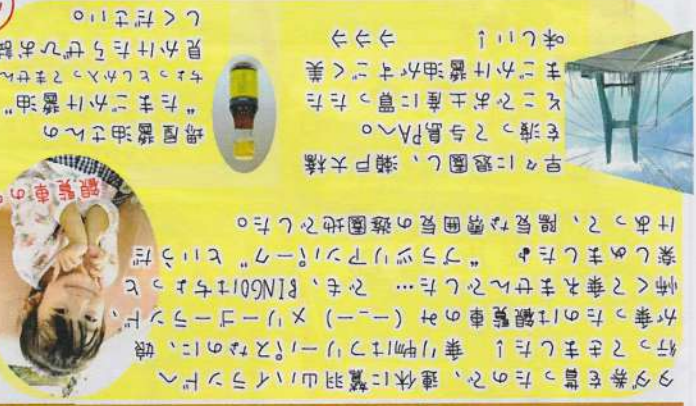 タダ券を貰ったので、連休に鷲羽山ハイランドへ
行ってきました！ 乗り物はフリーパスなのに、娘
が乗ったのは観覧車のみ（－_－）メリーゴーランド、
怖くて乗れませんでした… でも、BINGOはちょっと
楽しめました♪ “ブラジリアンパーク” というだ
けあって、陽気な雰囲気の遊園地でした。
観覧車の
早々に退園し、瀬戸大橋
を渡って与島PAへ。
そこでお土産に買ったた
まごかけ醤油がすごく美
味しい！
醤油さんの
“たまごかけ醤油”
ちょっとしか入ってません
見かけたらぜひお試
しください。